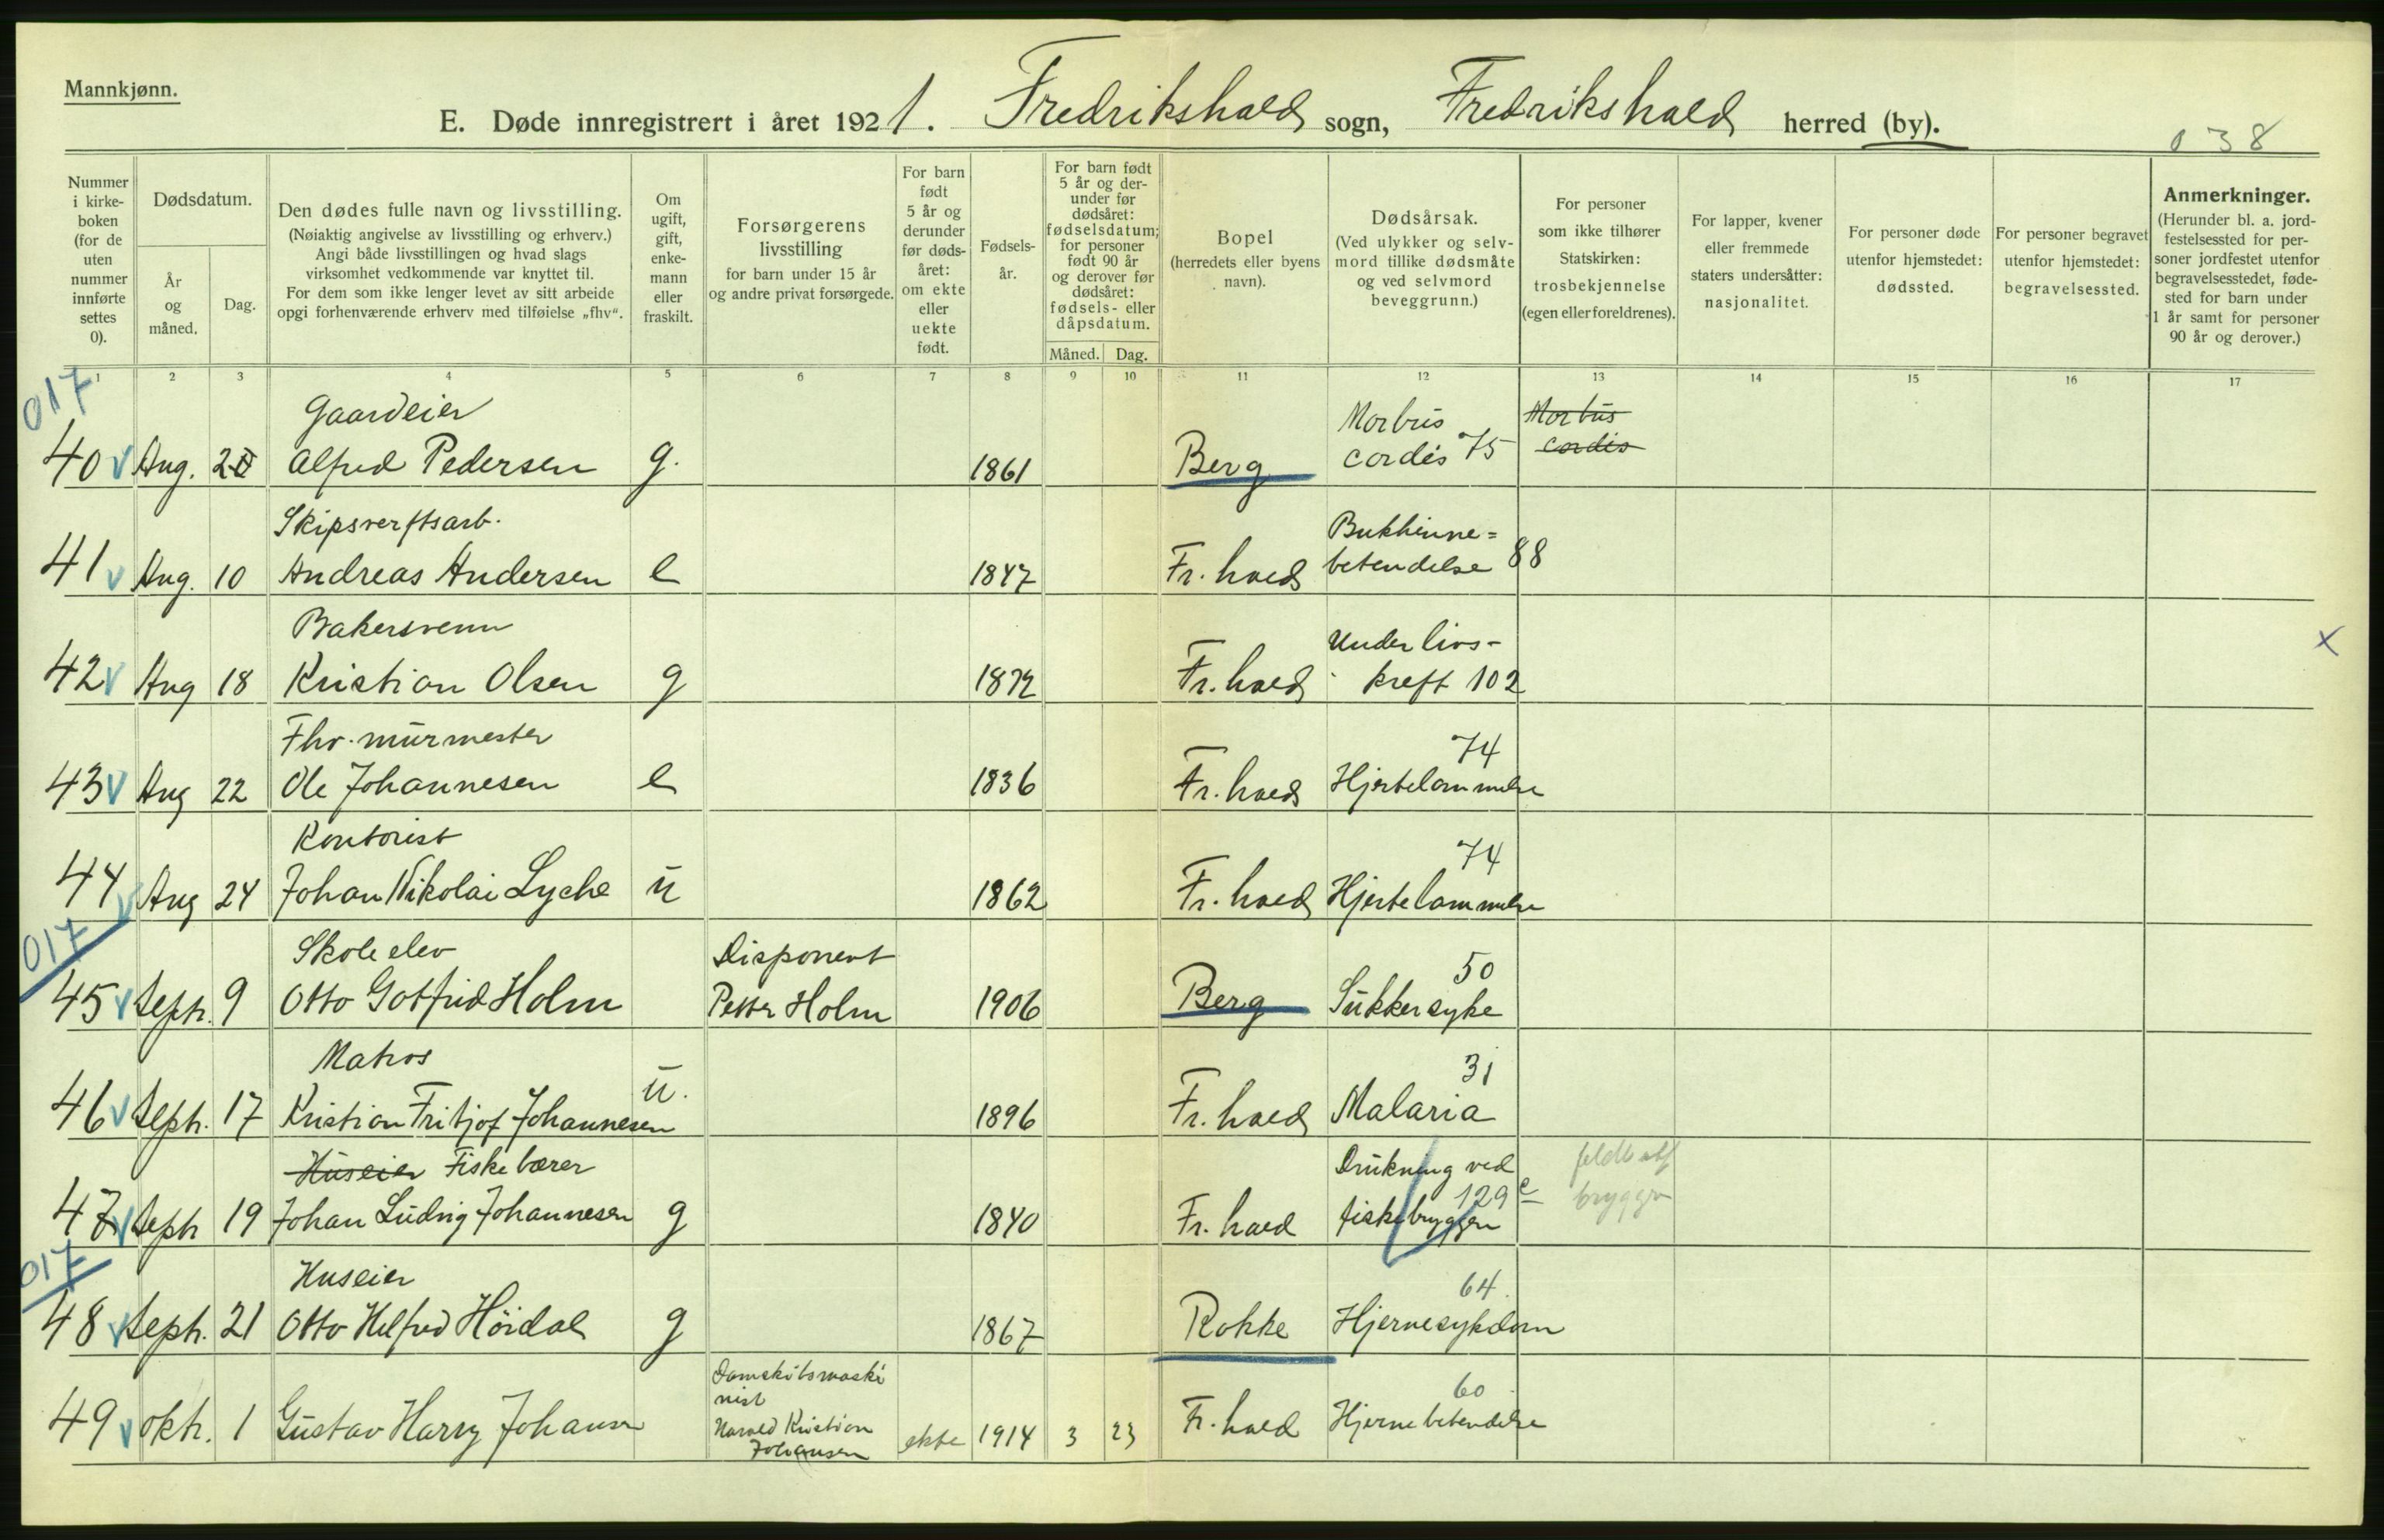 Mannkjønn.
E. Døde innregistrert i året 1921. Fredrikshald sogn, Fredrikshald herred (by).
038
Nummer i kirke- boken (for de uten nummer innførte settes 0).
Dødsdatum.
År og måned.
Dag.
Den dødes fulle navn og livsstilling.
(Nøiaktig angivelse av livsstilling og erhverv.)
Angi både livsstillingen og hvad slags
virksomhet vedkommende var knyttet til.
For dem som ikke lenger levet av sitt arbeide
opgi forhenværende erhverv med tilføielse „fhv“.
Om ugift, gift, enke- mann eller fraskilt.
Forsørgerens livsstilling
for barn under 15 år
og andre privat forsørgede.
For barn født 5 år og derunder før døds- året: om ekte eller uekte født.
Fødsels- år.
For barn født 5 år og der- under før dødsåret: fødselsdatum; for personer født 90 år og derover før dødsåret: fødsels- eller dåpsdatum.
Måned. Dag.
Bopel
(herredets eller byens navn).
Dødsårsak.
(Ved ulykker og selv- mord tillike dødsmåte og ved selvmord beveggrunn.)
For personer som ikke tilhører Statskirken: trosbekjennelse (egen eller foreldrenes).
For lapper, kvener eller fremmede staters undersåtter: nasjonalitet.
For personer døde utenfor hjemstedet: dødssted.
For personer begravet utenfor hjemstedet: begravelsessted.
Anmerkninger.
(Herunder bl. a. jord- festelsessted for per- soner jordfestet utenfor begravelsesstedet, føde- sted for barn under 1 år samt for personer 90 år og derover.)
1 2 3 4 5 6 7 8 9 10 11 12 13 14 15 16 17
017
Gaardeier Morbus Morbus
40 Aug. 2 Alfred Pedersen g. 1861 Berg cordis 75 cordis
Skipsverftsarb. Bukhinne=
41 Aug. 10 Andreas Andersen e 1847 Fr. hald betendelse 88
Bakersvenn Underlivs-
42 Aug 18 Kristian Olsen g 1872 Fr. hald kreft 102
x
Fhv. murmester 74
43 Aug 22 Ole Johannesen e 1836 Fr. hald Hjertelammelse
Kontorist 74
44 Aug 24 Johan Nikolai Lyche u 1862 Fr. hald Hjertelammelse
017
Skoleelev Disponent 50
45 Sept. 9 Otto Gotfrid Holm Petter Holm 1906 Berg Sukkersyke
Matros 31
46 Sept. 17 Kristian Fritjof Johannesen u. 1896 Fr. hald Malaria
Huseier Fiskebærer Drukning ved
47 Sept 19 Johan Ludvig Johannesen g 1840 Fr. hald fiskebryggen 129
bryggen
017
Huseier 64
48 Sept. 21 Otto Helfred Höidal g 1867 Rokke Hjernesykdom
Damskibsmaski
nist 60
49 okt. 1 Gustav Harry Johansen Harald Kristian Johansen ekte 1914 3 23 Fr. hald Hjernebetendelse